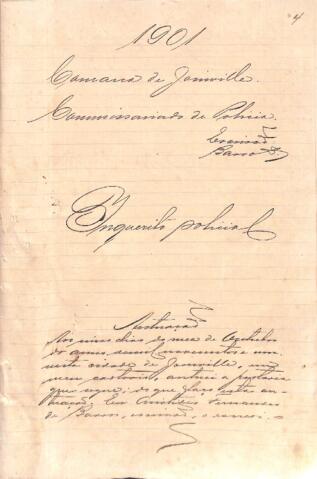 4
1901
Comarca de Joinville.
Commissariado de Policia.
Escrivão
Barros
Inquerito policial
Autuação
Aos cinco dias do mez de Outubro
do anno de mil novecentos e um
nesta cidade de Joinville, em
meu cartorio, autuei a portaria
que segue; do que faço esta au-
tuação. Eu Fernandes
de Barros, escrivão, o escrevi.